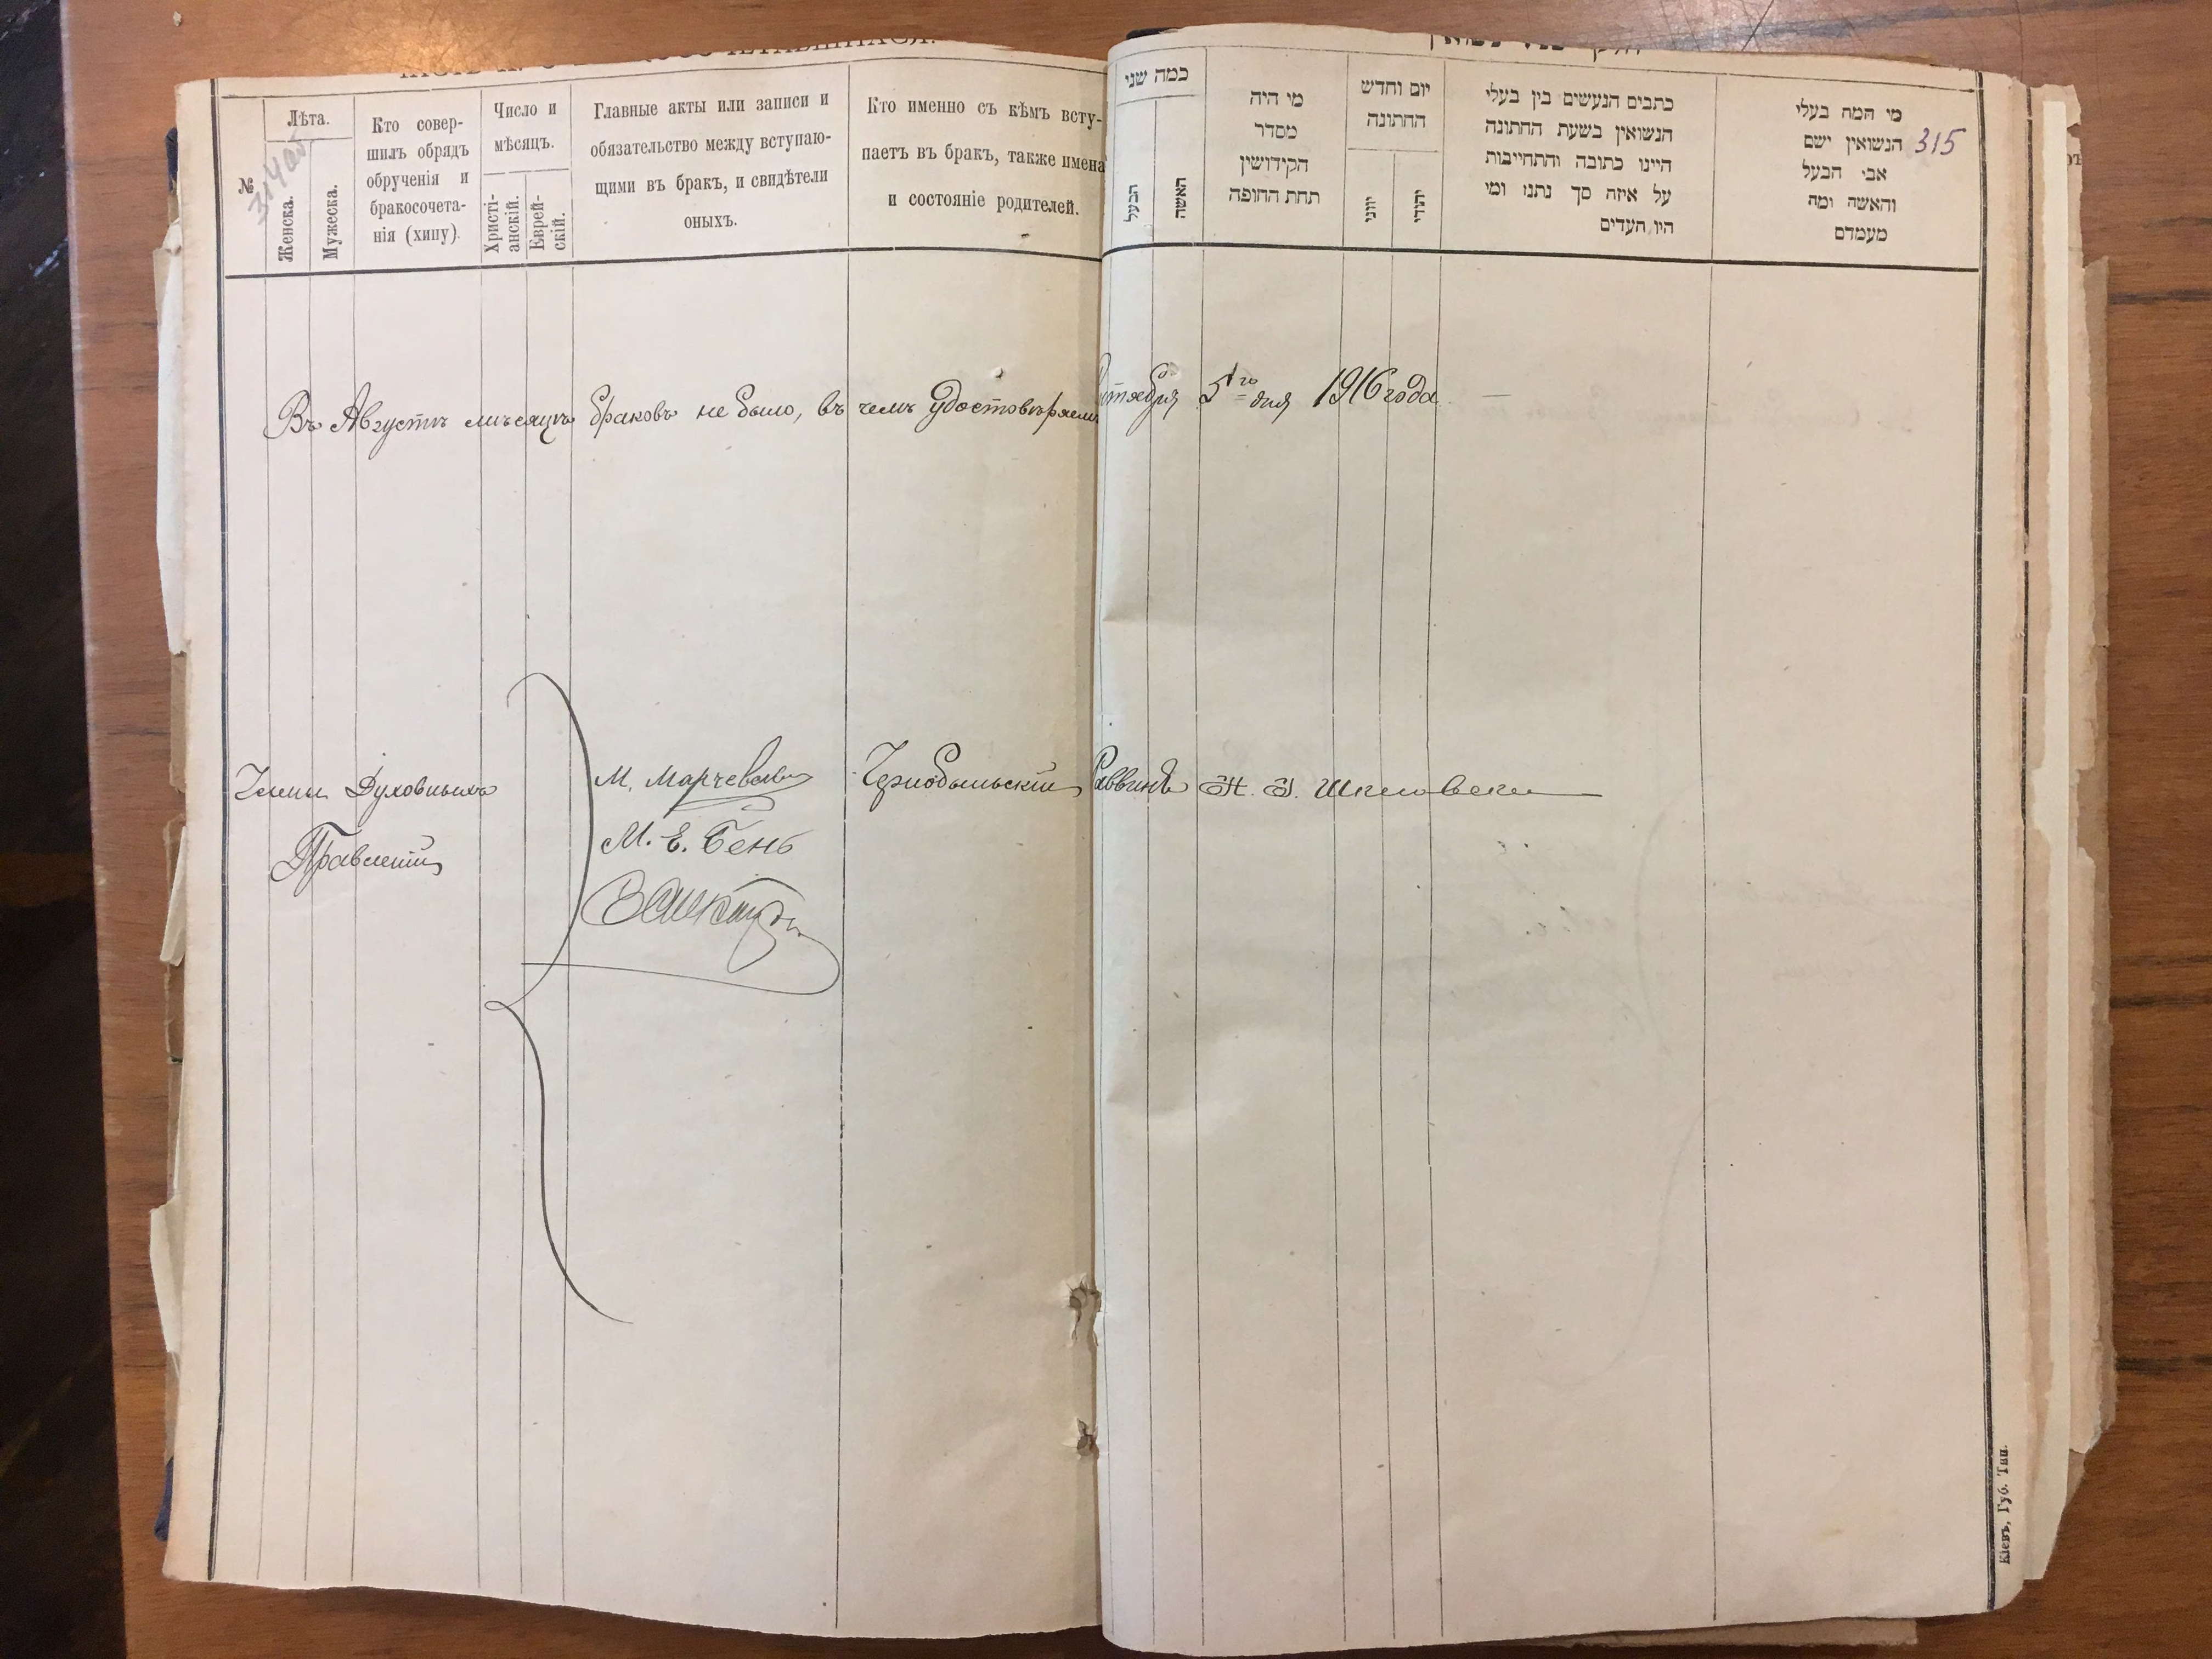 Лѣта.
Женска.
Мужеска.
№
Кто совер-
шилъ обрядъ
обрученія и
бракосочета-
нія (хипу).
Число и
мѣсяцъ.
Христі-
анскій.
Еврей-
скій.
Главные акты или записи и
обязательство между вступаю-
щими въ бракъ, и свидѣтели
оныхъ.
Кто именно съ кѣмъ всту-
паетъ въ бракъ, также имена
и состояніе родителей.
כמה שני
הבעל
האשה
מי היה
מסדר
הקידושין
תחת החופה
יום וחדש
החתונה
יווני
יהודי
כתבים הנעשים בין בעלי
הנשואין בשעת החתונה
היינו כתובה והתחייבות
על איזה סך נתנו ומי
היו העדים
מי המה בעלי
הנשואין ישם
אבי הבעל
והאשה ומה
מעמדם
315
Въ Августѣ мѣсяцѣ браковъ не было, въ чемъ удостовѣряемъ 5го дня 1916 года
Члены Духовныхъ
Правленій
М. Марчевскій
М. Е. Бень
Чернобыльскій Раввинъ
Кіевъ, Губ. Тип.